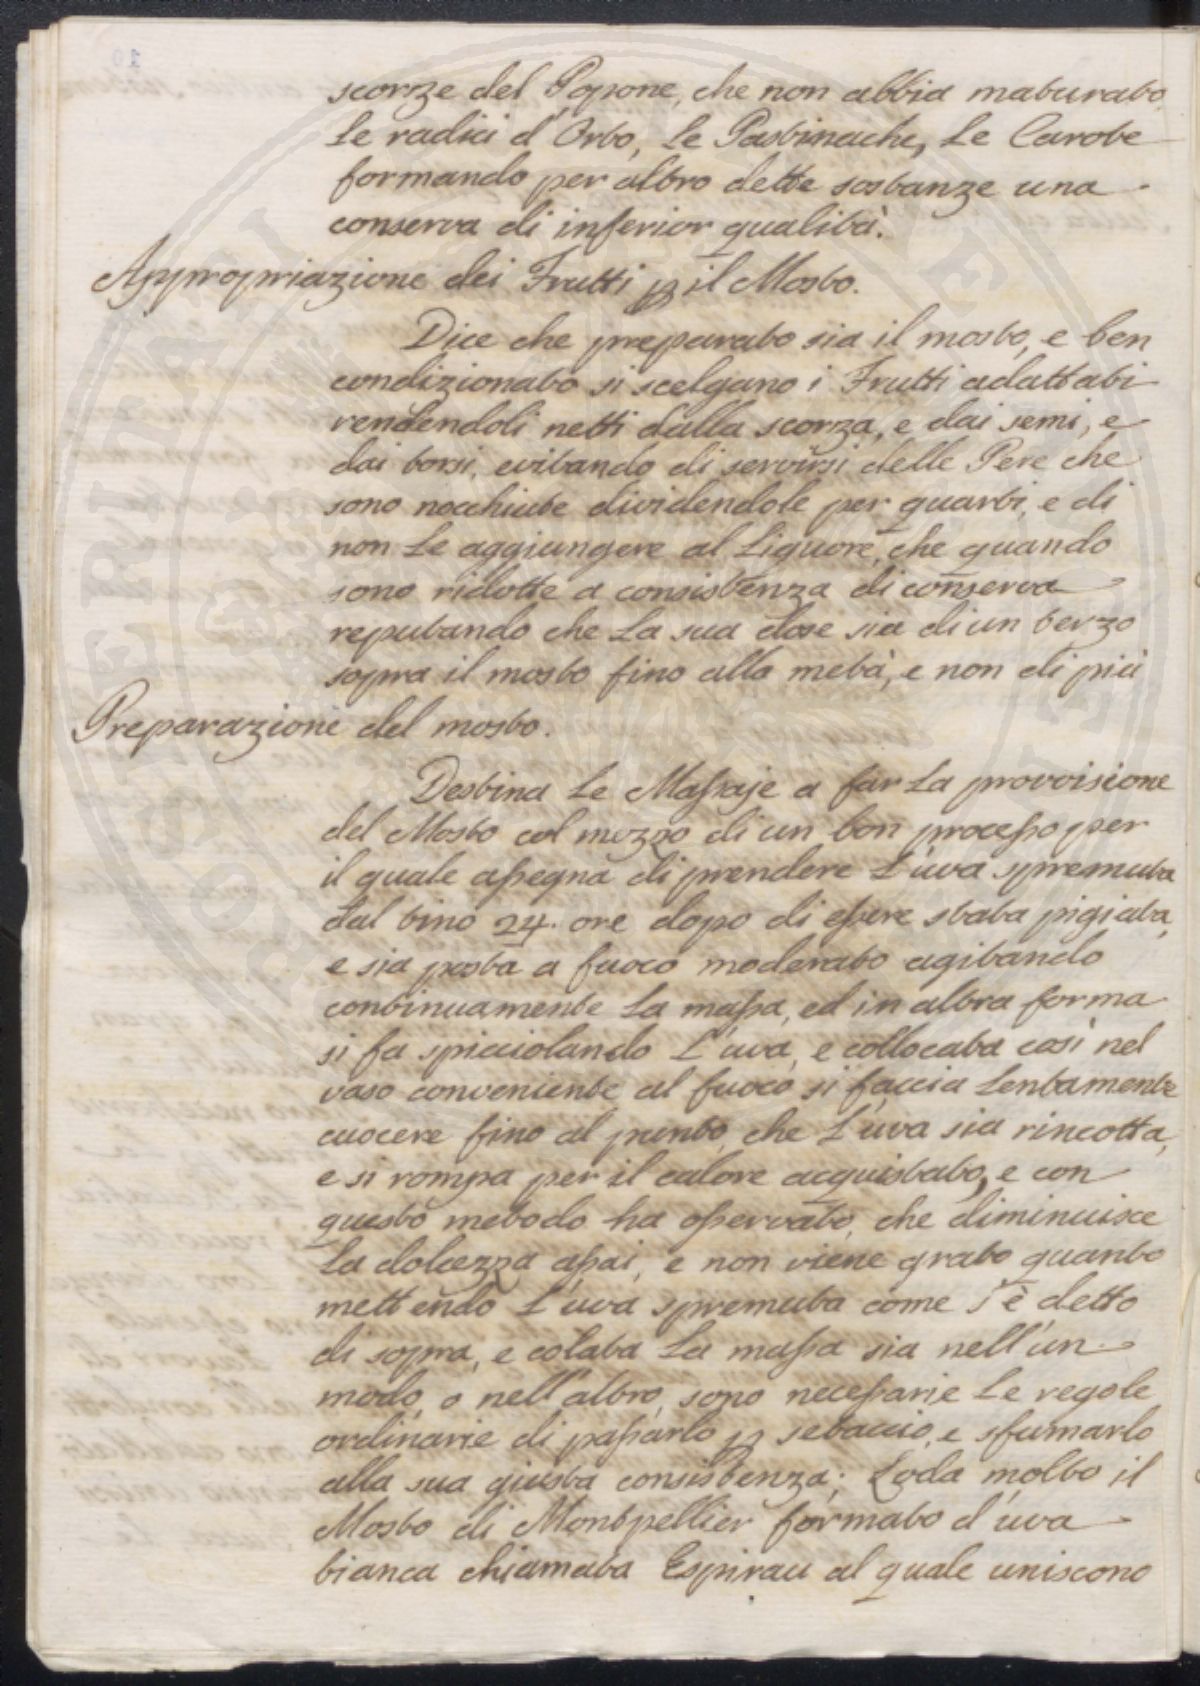 scorze del Popone, che non abbia maturato,
le radici d'Orto, le Pastinache, le Carote
formando per altro dette sostanze una
conserva di inferior qualità.
Appropriazione dei Frutti p il Mosto.
Dice che preparato sia il mosto, e ben
condizionato si scelgano i Frutti adattati
rendendoli netti dalla scorza, e dai semi, e
dai torsi, evitando di servirsi delle Pere che
sono nocchiute dividendole per quarti, e di
non le aggiungere al liquore, che quando
sono ridotte a consistenza di conserva
reputando che la sua dose sia di un terzo
sopra il mosto fino alla metà, e non di più
Preparazione del mosto.
Destina le Massaje a far la provvisione
del Mosto col mezzo di un bon processo per
il quale assegna di prendere l'uva spremuta
dal tino 24. ore dopo di essere stata pigiata,
e sia posta a fuoco moderato agitando
continuamente la massa, ed in altra forma
si fa spicciolando l'uva, e collocata così nel
vaso conveniente al fuoco si faccia lentamente
cuocere fino al punto, che l'uva sia rincotta,
e si rompa per il calore acquistato, e con
questo metodo ha osservato, che diminuisce
la dolcezza assai, e non viene grato quanto
mettendo l'uva spremuta come s'è detto
di sopra, e colata la massa sia nell'un
modo, o nell'altro, sono necessarie le regole
ordinarie di passarlo p setaccio, e sfumarlo
alla sua giusta consistenza; Loda molto il
Mosto di Montpellier formato d'uva
bianca chiamata Espirau al quale uniscono